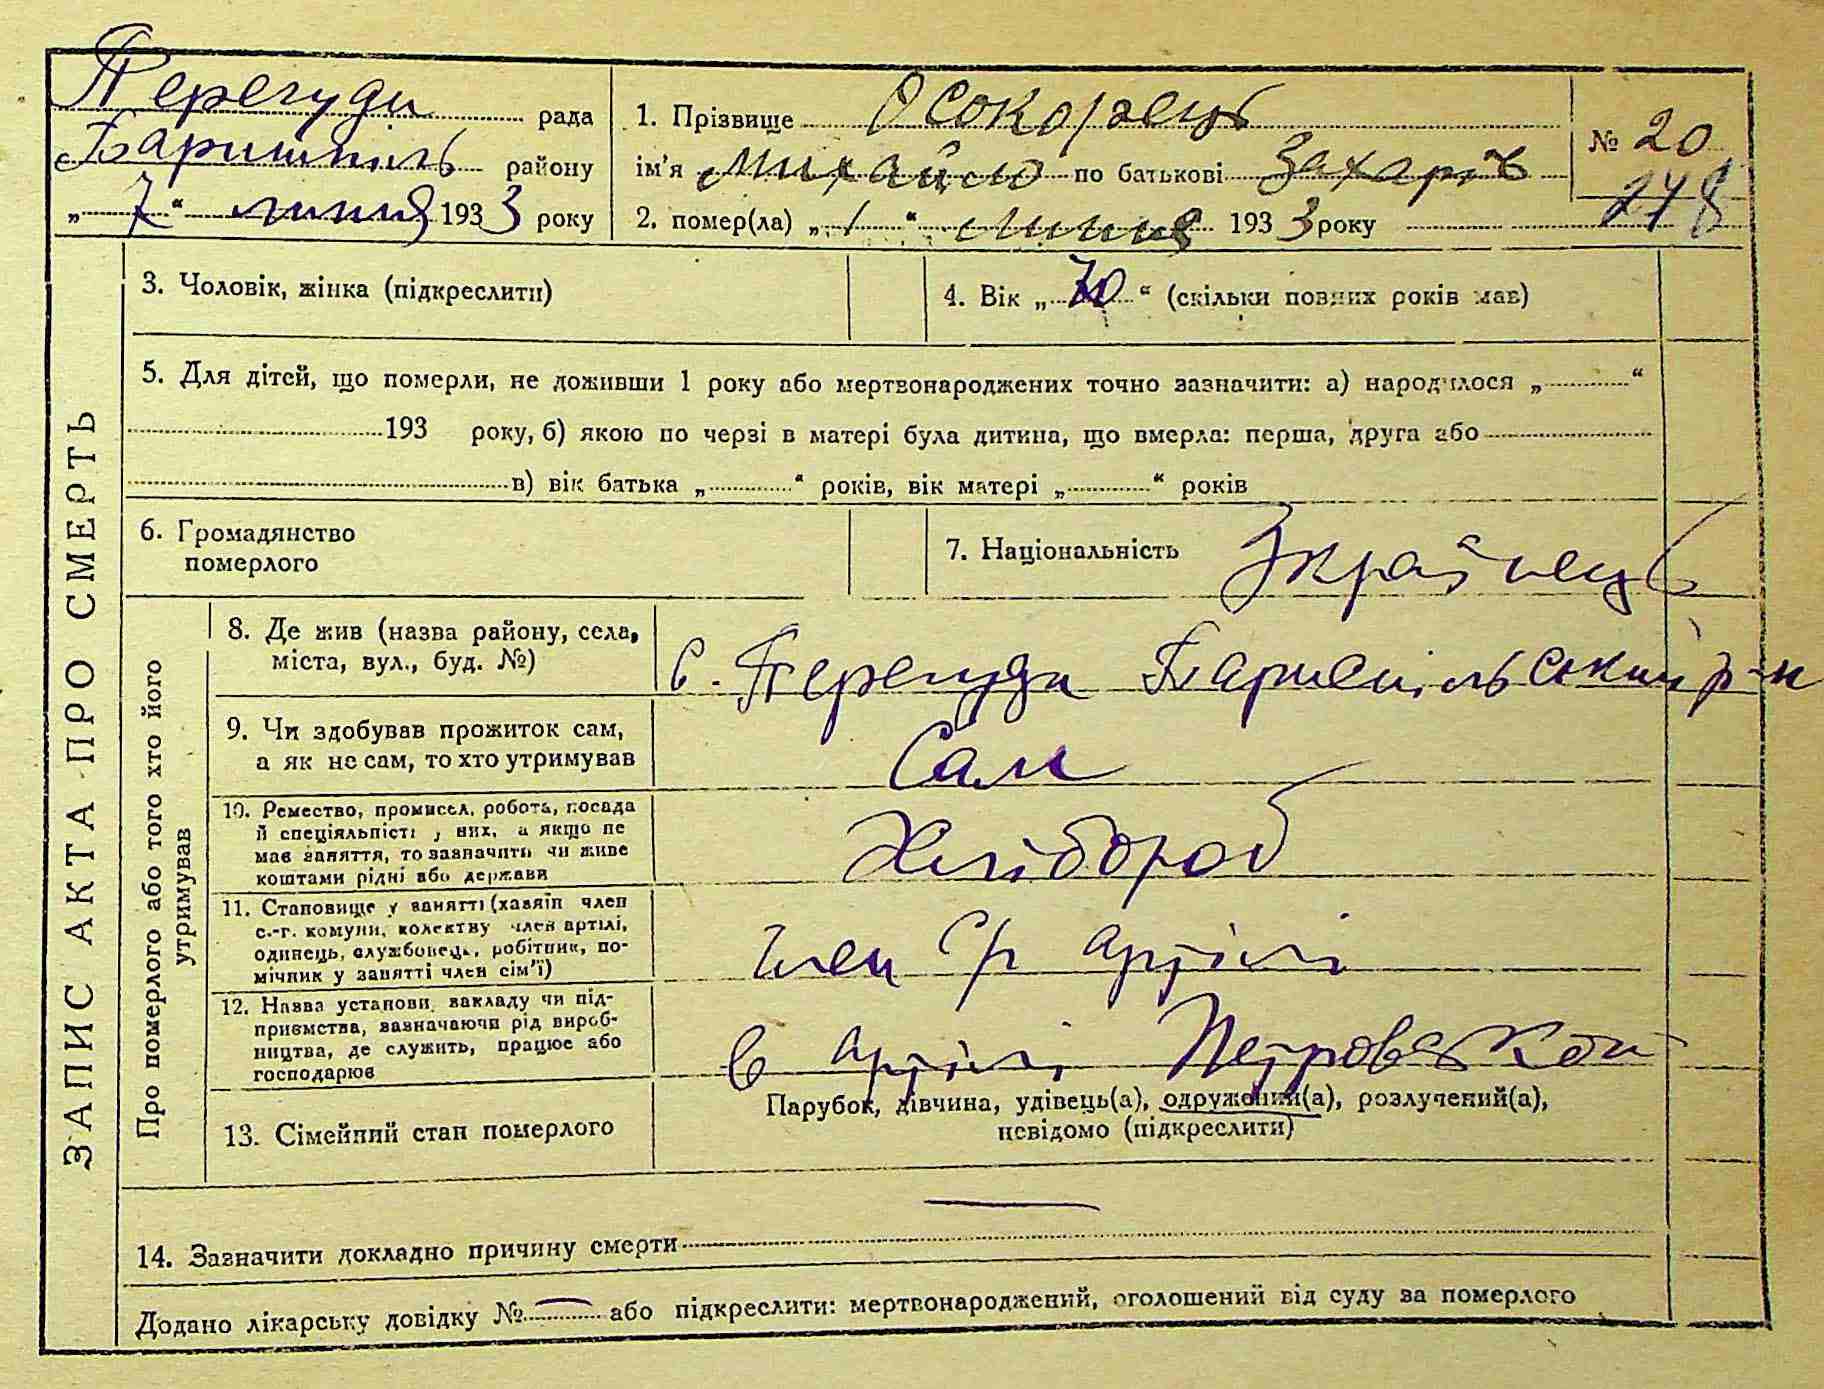 Перегуди рада
Баришпіль району
„ 7 “ липня 1933 року
1. Прізвище Осокорець
ім'я Михайло по батькові Захарів
2. помер(ла) „ 1 “ липня 1933 року
№ 20
278
ЗАПИС АКТА ПРО СМЕРТЬ
3. Чоловік, жінка (підкреслити)
4. Вік „ 70 “ (скільки повних років має)
5. Для дітей, що померли, не доживши 1 року або мертвонароджених точно зазначити: а) народилося „ “
193 року, б) якою по черзі в матері була дитина, що вмерла: перша, друга або
в) вік батька „ “ років, вік матері „ “ років
6. Громадянство
померлого
7. Національність Українець
Про померлого або того хто його
утримував
8. Де жив (назва району, села,
міста, вул., буд. №)
с. Перегуди Баришпільський р-н
9. Чи здобував прожиток сам,
а як не сам, то хто утримував
Сам
10. Ремество, промисел, робота, посада
й спеціяльність у них, а якщо не
має заняття, то зазначить чи живе
коштами рідні або держави
Хлібороб
11. Становище у занятті (хазяїн член
с.-г. комуни, колективу член артілі,
одинець, службовець, робітник, по-
мічник у занятті член сім'ї)
член С/г артілі
12. Назва установи, закладу чи під-
приємства, зазначаючи рід вироб-
ництва, де служить, працює або
господарює
в артілі Петровської
13. Сімейний стан померлого
Парубок, дівчина, удівець(а), одружений(а), розлучений(а),
невідомо (підкреслити)
14. Зазначити докладно причину смерти
Додано лікарську довідку № — або підкреслити: мертвонароджений, оголошений від суду за померлого